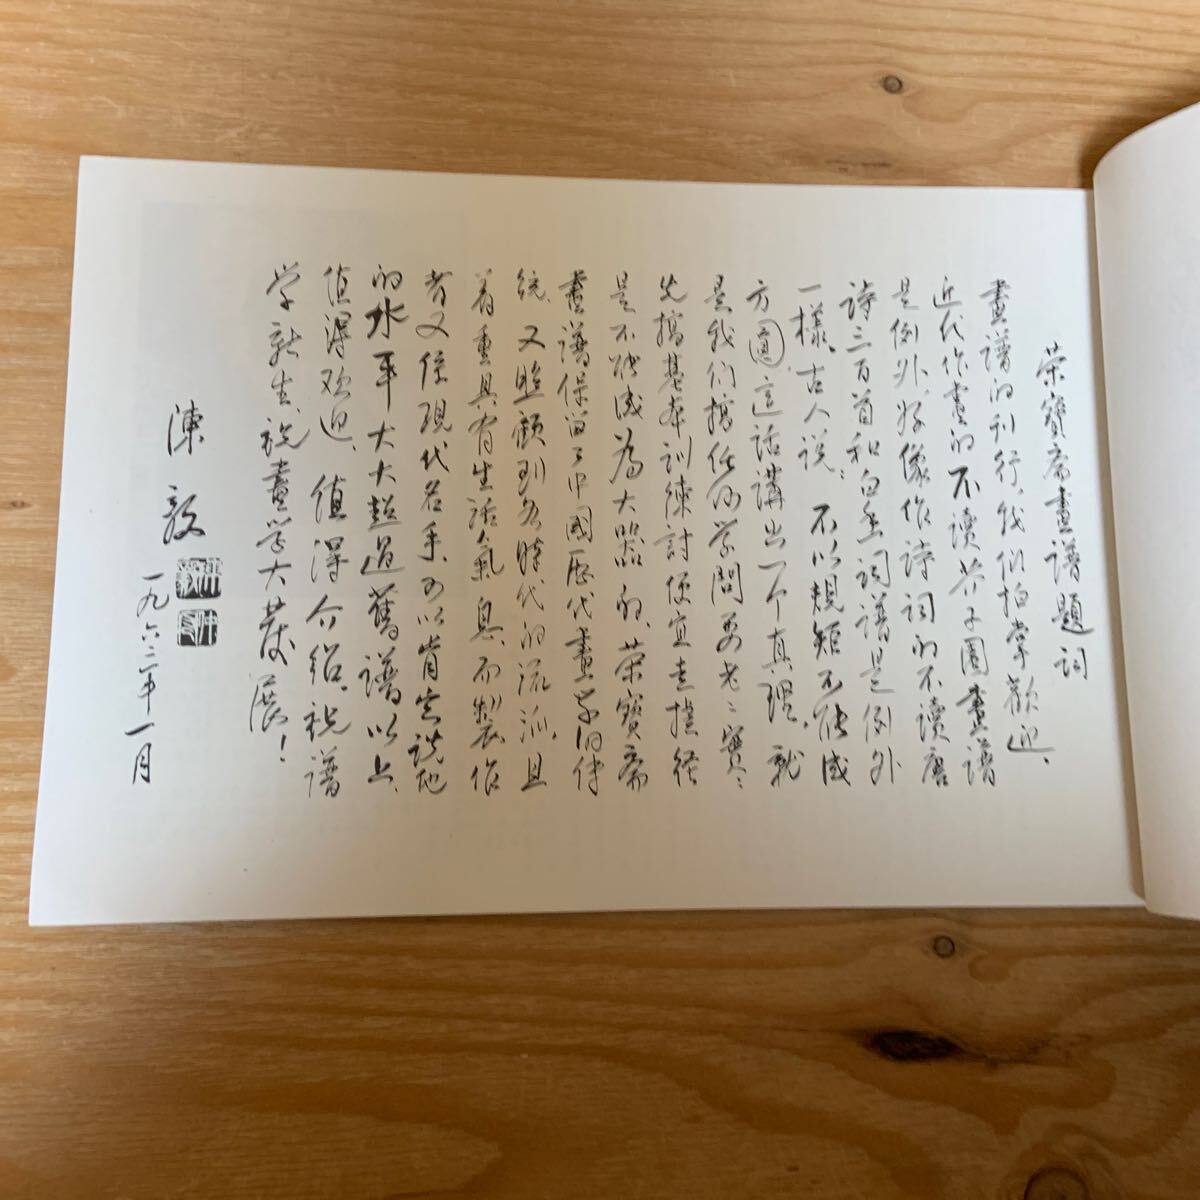 荣寶斋畫譜題词
畫譜的刊行,我们拍掌歡迎、
近代作畫的不讀芥子園畫譜
是例外,好像作诗词的不讀唐
诗三百首和白香词譜是例外
一樣、古人说:不以規矩不能成
方圓,這话講出一个真理,就
是我们搞任何学問要老老實實
先搞基本训練討便宜走捷径
是不能成為大器的、荣寶斋
畫譜保留了中國歷代畫学的传
统、又照顧到各時代的流派,且
着重具有生活氣息、而製作
者又係现代名手、可以肯定說他
的水平大大超過舊譜以上、
值得欢迎、值得介绍、祝譜
学新生、祝畫学大發展!
陳毅
一九六二年一月